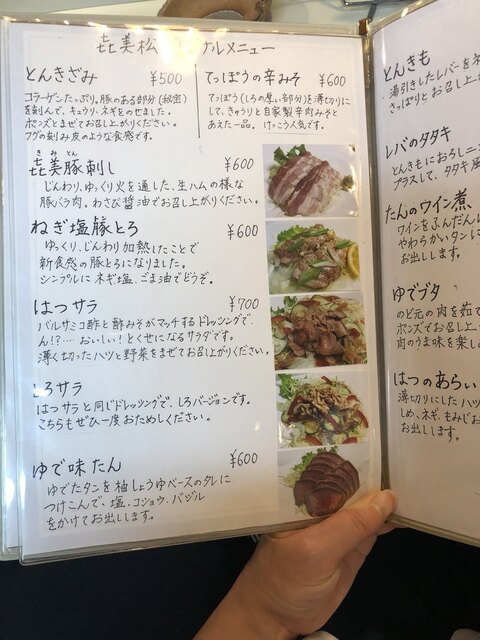 㐂美松
ルメニュー
とんきざみ ¥500
コラーゲンたっぷり。豚のある部分(秘密)
を刻んで、キュウリ、ネギをのせました。
ポンズとまぜてお召し上がりください。
フグの刻み皮のような食感です。
てっぽうの辛みそ ¥600
てっぽう(しろの厚い部分)を薄切りに
して、きゅうりと自家製辛肉みそと
あえた一品。けっこう人気です。
きみとん
㐂美豚刺し ¥600
じんわり、ゆっくり火を通した、生ハムの様な
豚バラ肉。わさび醤油でお召し上がりください。
ねぎ塩豚とろ ¥600
ゆっくり、じんわり加熱したことで
新食感の豚とろになりました。
シンプルにネギ塩、ごま油でどうぞ。
はつサラ ¥700
バルサミコ酢と酢みそがマッチするドレッシングで、
ん!?…おいしい!とくせになるサラダです。
薄く切ったハツと野菜をまぜてお召し上がりください。
しろサラ
はつサラと同じドレッシングで、しろバージョンです。
こちらもぜひ一度おためしください。
ゆで味たん ¥600
ゆでたタンを柚しょうゆベースのタレに
つけこんで、塩、コショウ、バジル
をかけてお出しします。
とんきも
湯引きしたレバーを
さっぱりとお召し上
レバのタタキ
とんきもにおろしニ
プラスして、タタキ風
たんのワイン煮
ワインをふんだんに
やわらかいタンに
お出しします。
ゆでブタ
のど元の肉を茹で
ポンズでお召し上
肉のうま味を楽し
はつのあらい
薄切りにしたハツ
しめ、ネギ、もみじお
お出しします。